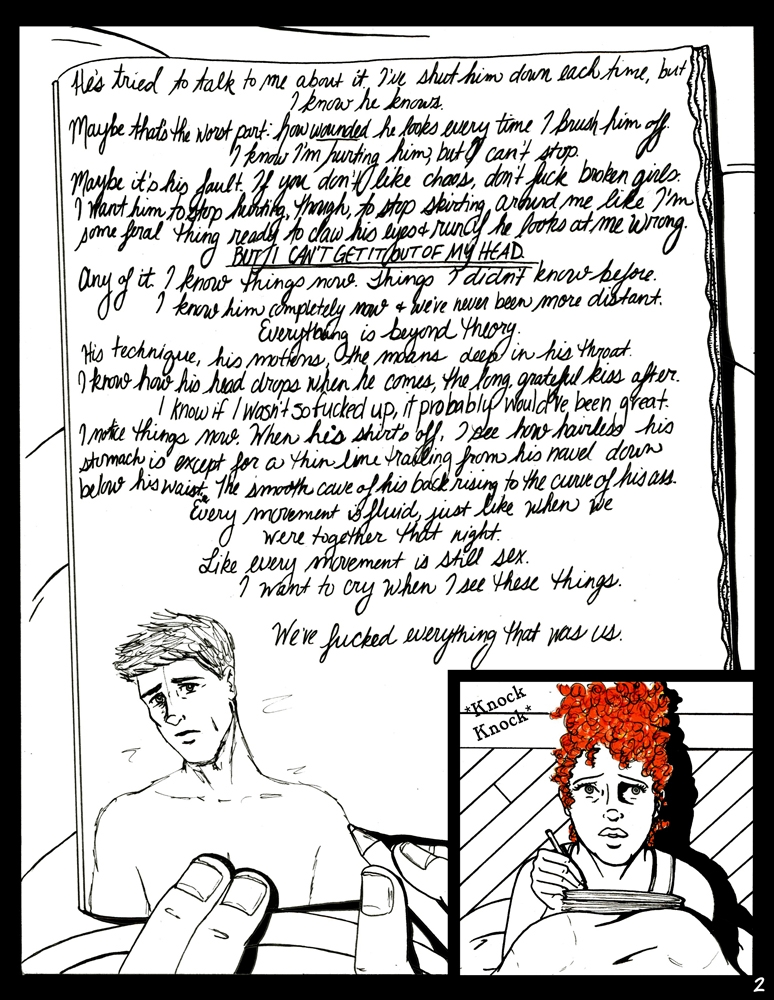 He's tried to talk to me about it. I've shut him down each time, but
I know he knows.
Maybe that's the worst part: how wounded he looks every time I brush him off.
I know I'm hurting him, but I can't stop.
Maybe it's his fault. If you don't like chaos, don't fuck broken girls.
I want him to stop hurting, though, to stop skirting around me like I'm
some feral thing ready to claw his eyes & run if he looks at me wrong.
BUT I CAN'T GET IT OUT OF MY HEAD.
Any of it. I know things now. Things I didn't know before.
I know him completely now & we've never been more distant.
Everything is beyond theory.
His technique, his motions, the moans deep in his throat.
I know how his head drops when he comes, the long, grateful kiss after.
I know if I wasn't so fucked up, it probably would've been great.
I notice things now. When his shirt's off, I see how hairless his
stomach is except for a thin line trailing from his navel down
below his waist. The smooth cave of his back rising to the curve of his ass.
Every movement is fluid, just like when we
were together that night.
Like every movement is still sex.
I want to cry when I see these things.
We've fucked everything that was us.
*Knock
Knock*
2